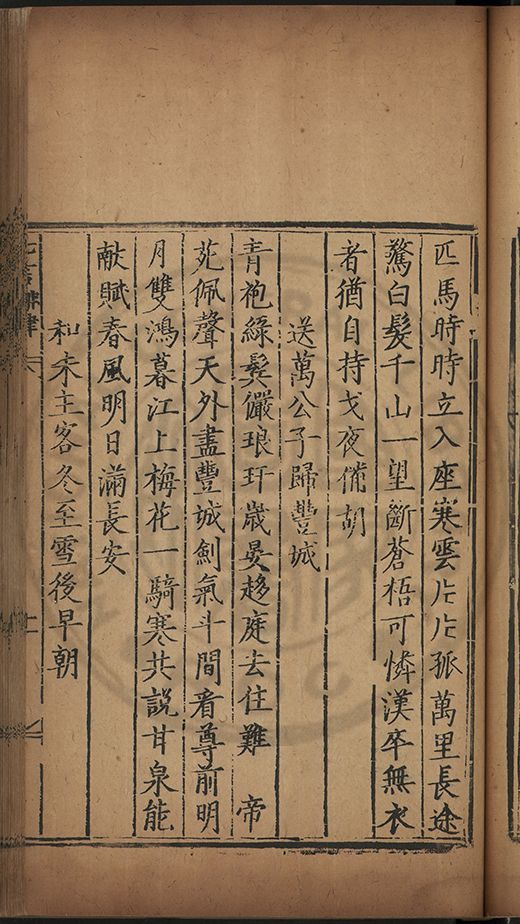 匹馬時時立入座寒雲片片孤萬里長途
驚白髮千山一望斷蒼梧可憐漢卒無衣
者猶自持戈夜備胡
送萬公子歸豐城
青袍綠鬂儼琅玕歲晏趍庭去住難 帝
苑佩聲天外盡豐城劍氣斗間看尊前明
月雙鴻暮江上梅花一騎寒共說甘泉能
獻賦春風明日滿長安
和朱主客冬至雪後早朝
七言律